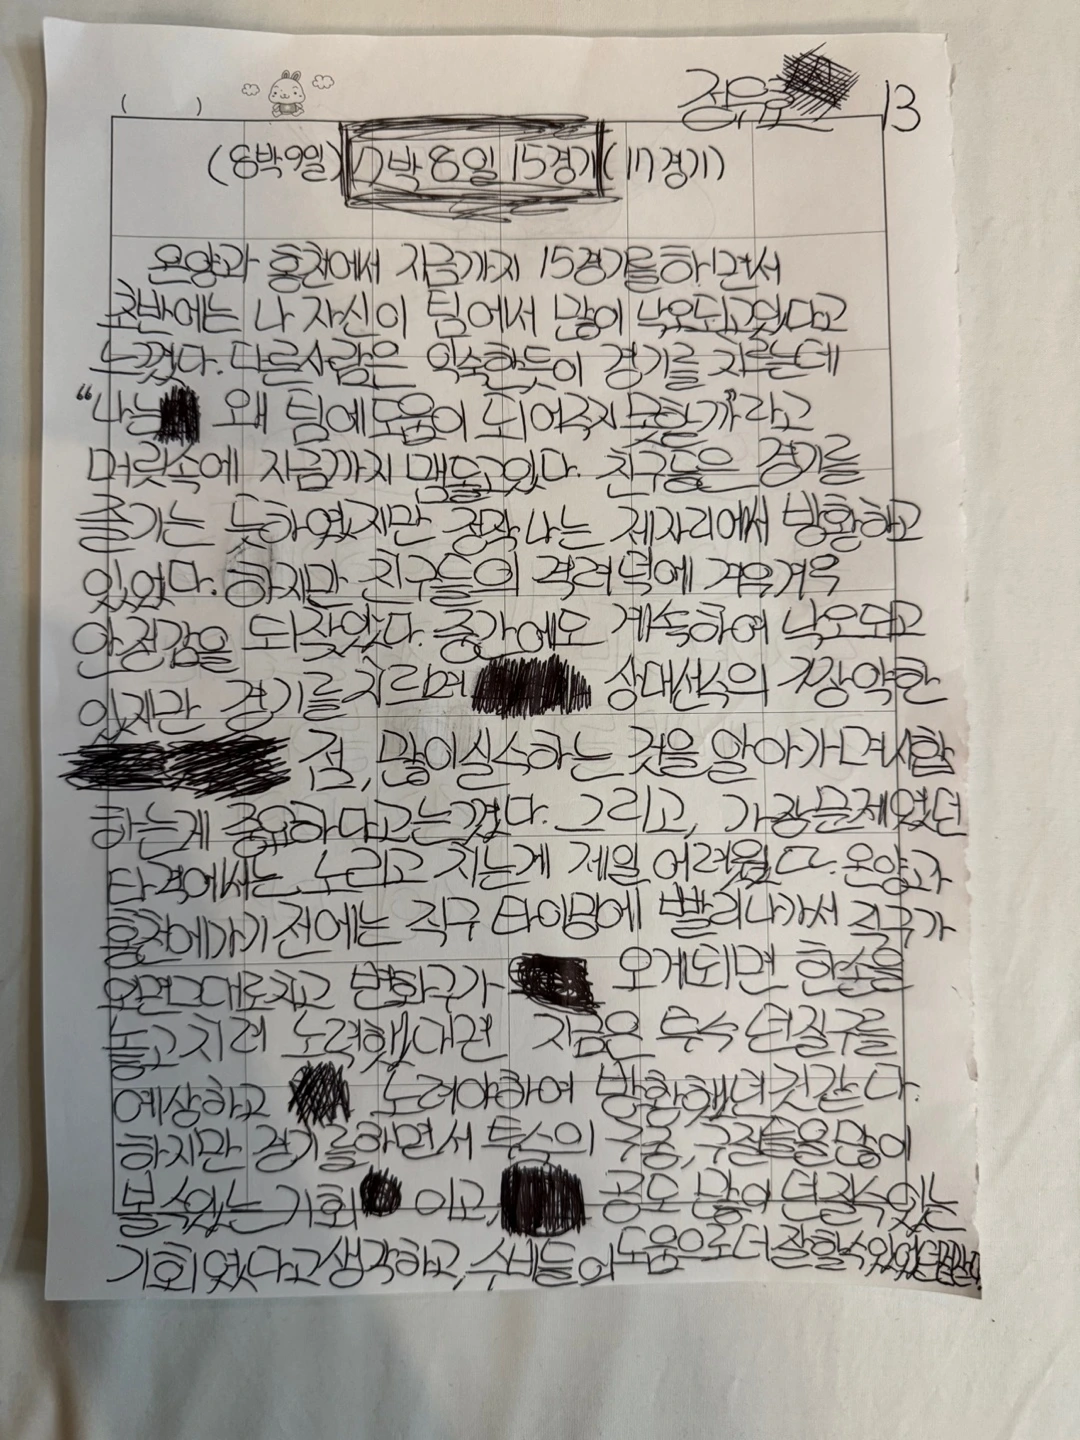 ( ) 정우 13
(8박9일) 7박 8일 15경기 (17경기)
온양과 홍천에서 지금까지 15경기를하면서
초반에는 나 자신이 팀에서 많이 낙오되고있다고
느꼈다. 다른사람은 익숙한듯이 경기를 치르는데
"나는 왜 팀에도움이 되어주지 못할까"라고
머릿속에 지금까지 맴돌고있다. 친구들은 경기를
즐기는 듯하였지만 정작 나는 제자리에서 방황하고
있었다. 하지만 친구들의 격려 덕에 겨우겨우
안정감을 되찾았다. 중간에도 계속하여 낙오되고
있지만 경기를 치르며 상대선수의 가장 약한
점, 많이실수하는 것을 알아가며시합
하는게 중요하다고느꼈다. 그리고, 가장문제였던
타격에서는 노리고 치는게 제일 어려웠다. 온양과
홍천에가기 전에는 직구 타이밍에 빨리나가서 직구가
오면그대로치고 변화구가 오게되면 한손을
놓고 치려 노력했다면 지금은 투수 던질구를
예상하고 노려야하여 방황했던것같다.
하지만 경기를하면서 투수의 구종, 구질들을많이
볼수있는 기회 이고, 공도 많이 던질수있는
기회였다고생각하고, 수비들의도움으로더잘할수있었던것같다